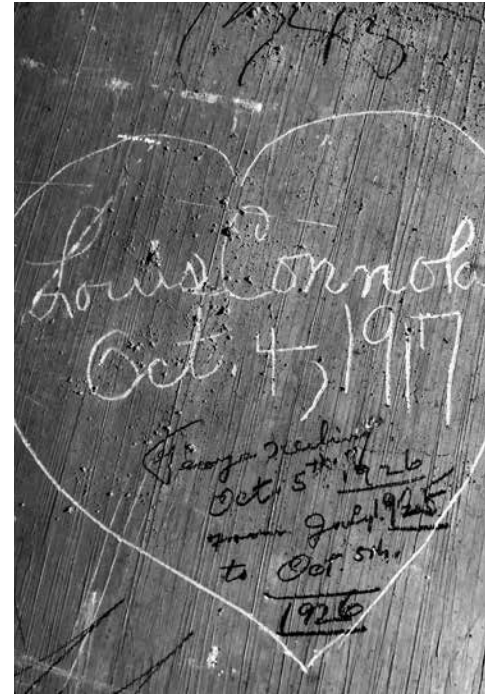 1943
Louis Connola
Oct. 4, 1917
George
Oct. 5th. 1926
from July. 1925
to Oct. 5th.
1926